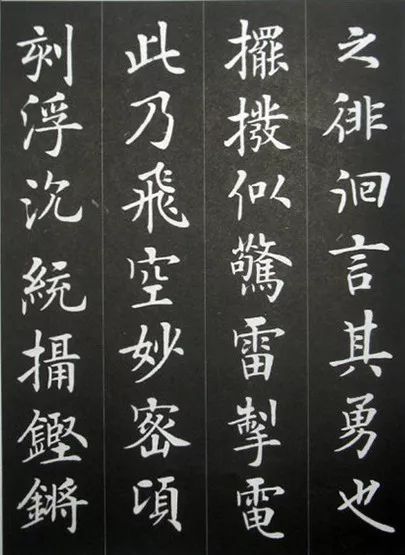 之徘徊言其勇也
擺撥似驚雷掣電
此乃飛空妙密頃
刻浮沉統攝鏗鏘